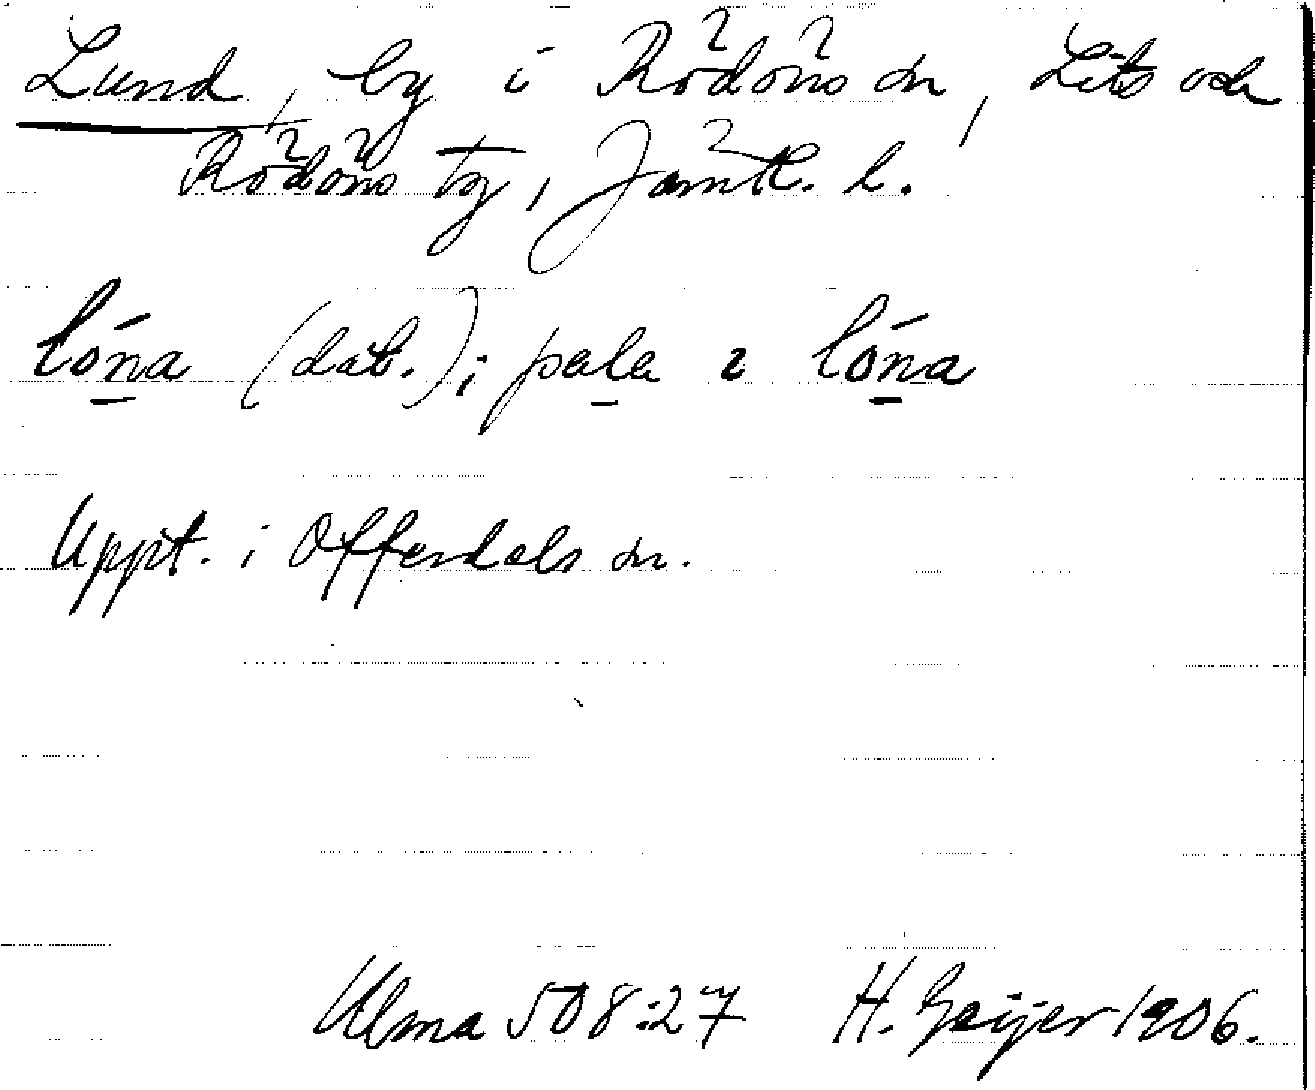 Lund, by i Rödöns sn, Lits och
Rödöns tg, Jämtl. l.
lóna (dat.); pala i lóna
Uppt. i Offerdals sn.
Ulma 508:27 H. Geijer 1906.